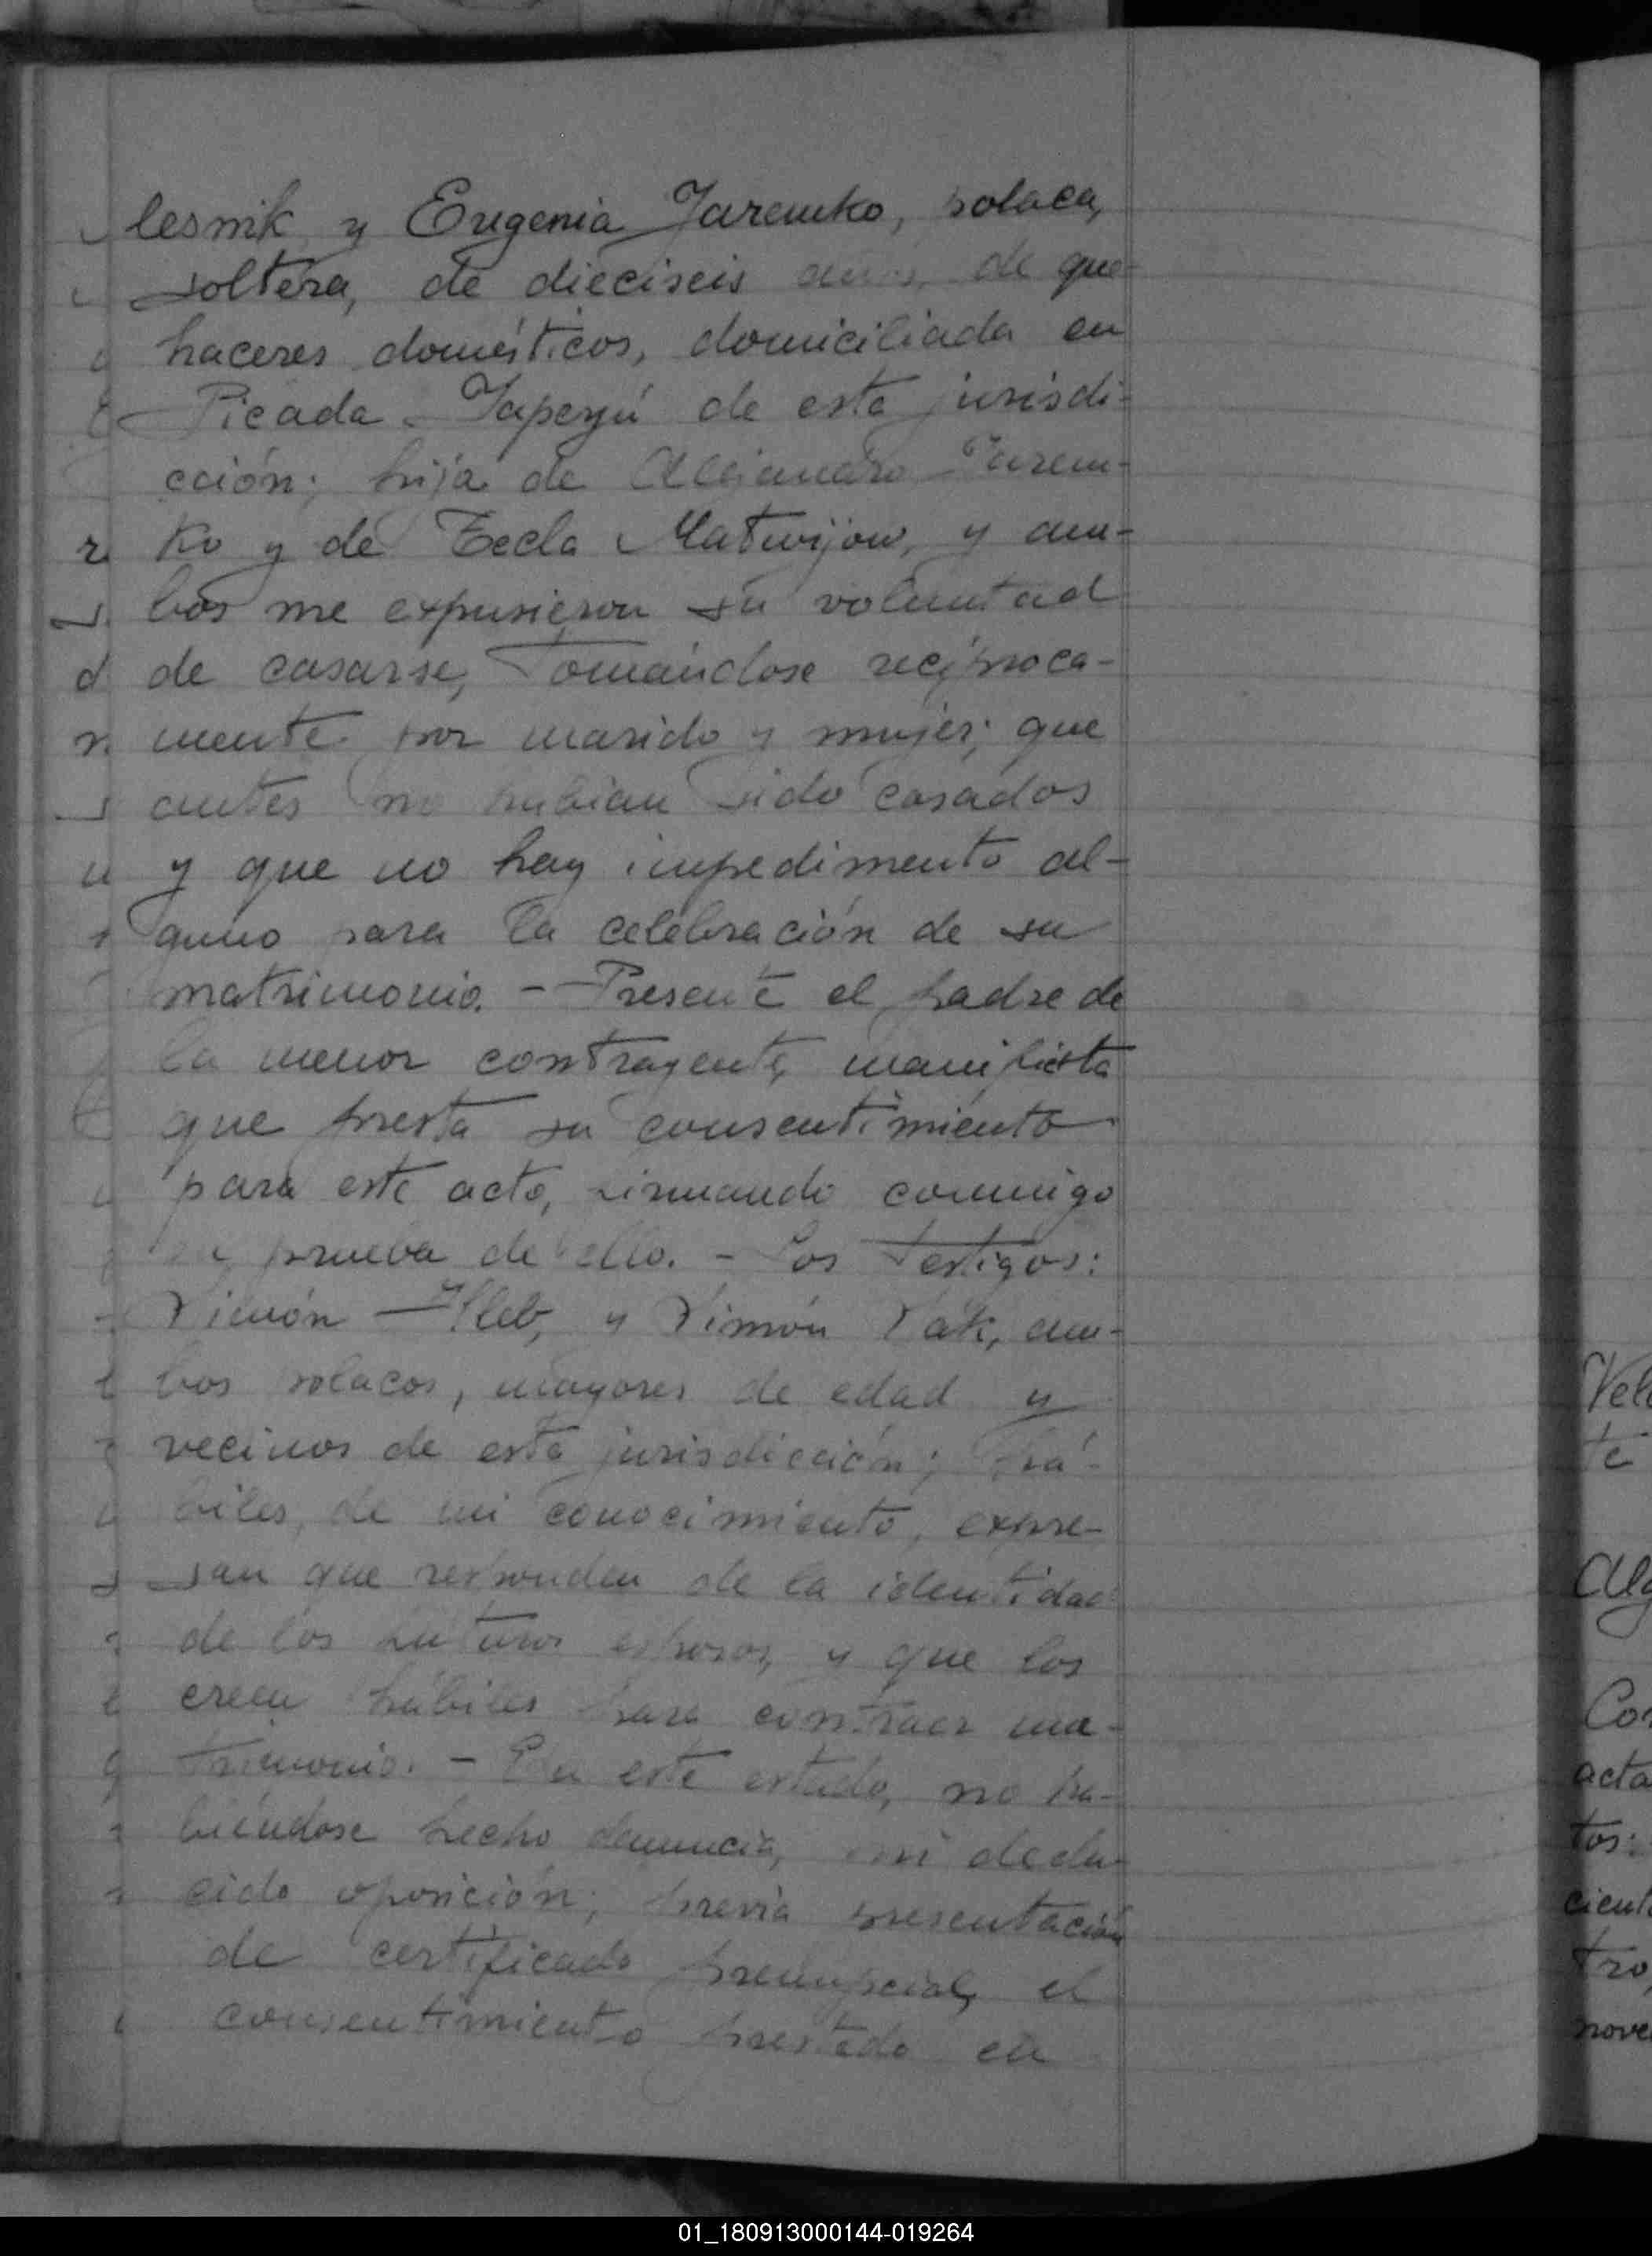 lesnik y Eugenia Jaremko, polaca,
soltera, de dieciseis años, de que-
haceres domésticos, domiciliada en
Picada Yapeyú de esta jurisdi-
cción; hija de Alejandro Jarem-
ko y de Tecla Matwijow, y am-
bos me expusieron su voluntad
de casarse, tomándose recíproca-
mente por marido y mujer; que
antes no habian sido casados
y que no hay impedimento al-
guno para la celebración de su
matrimonio. - Presente el padre de
la menor contrayente, manifiesta
que presta su consentimiento
para este acto, firmando conmigo
en prueba de ello. - Los testigos:
Simón y Simón am-
bos polacos, mayores de edad y
vecinos de esta jurisdicción; há-
biles, de mi conocimiento, expre-
san que responden de la identidad
de los futuros esposos, y que los
creen hábiles para contraer ma-
trimonio. - En este estado, no ha-
biéndose hecho denuncia, ni dedu-
cido oposición; previa presentación
de certificado prenupcial, el
consentimiento prestado en
Cor
acta
tos:
cient
tro,
nove
01_180913000144-019264